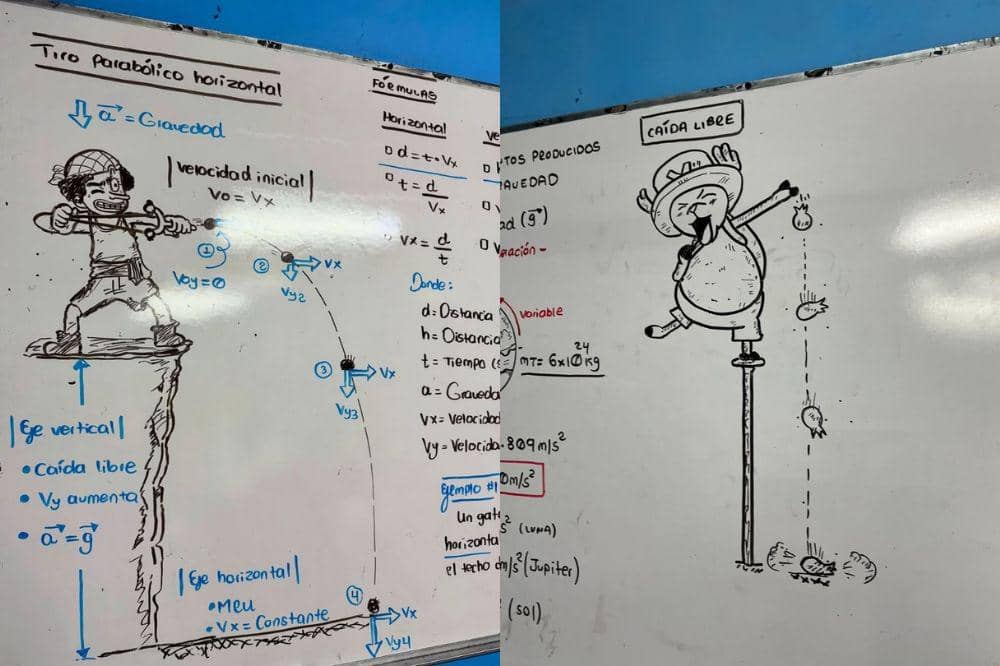 Tiro parabólico horizontal
a = Gravedad
|Velocidad inicial|
Vo = Vx
①
Voy = 0
②
Vx
Vy2
③
Vx
Vy3
④
Vx
Vy4
|Eje vertical|
• Caída libre
• Vy aumenta
• a = g
|Eje horizontal|
• Meu
• Vx = Constante
FÓRMULAS
Horizontal
d = t · Vx
t = d
Vx
Vx = d
t
Donde:
d = Distancia
h = Distancia
t = Tiempo (s
a = Graveda
Vx = Velocidad
Vy = Velocida
Ejemplo #1
Un gat
horizonta
el techo d
CAÍDA LIBRE
TOS PRODUCIDOS
AVEDAD
ad (g)
ración -
variable
mT = 6x10²⁴ kg
809 m/s²
0 m/s²
s² (LUNA)
m/s² (Jupiter)
(SOL)